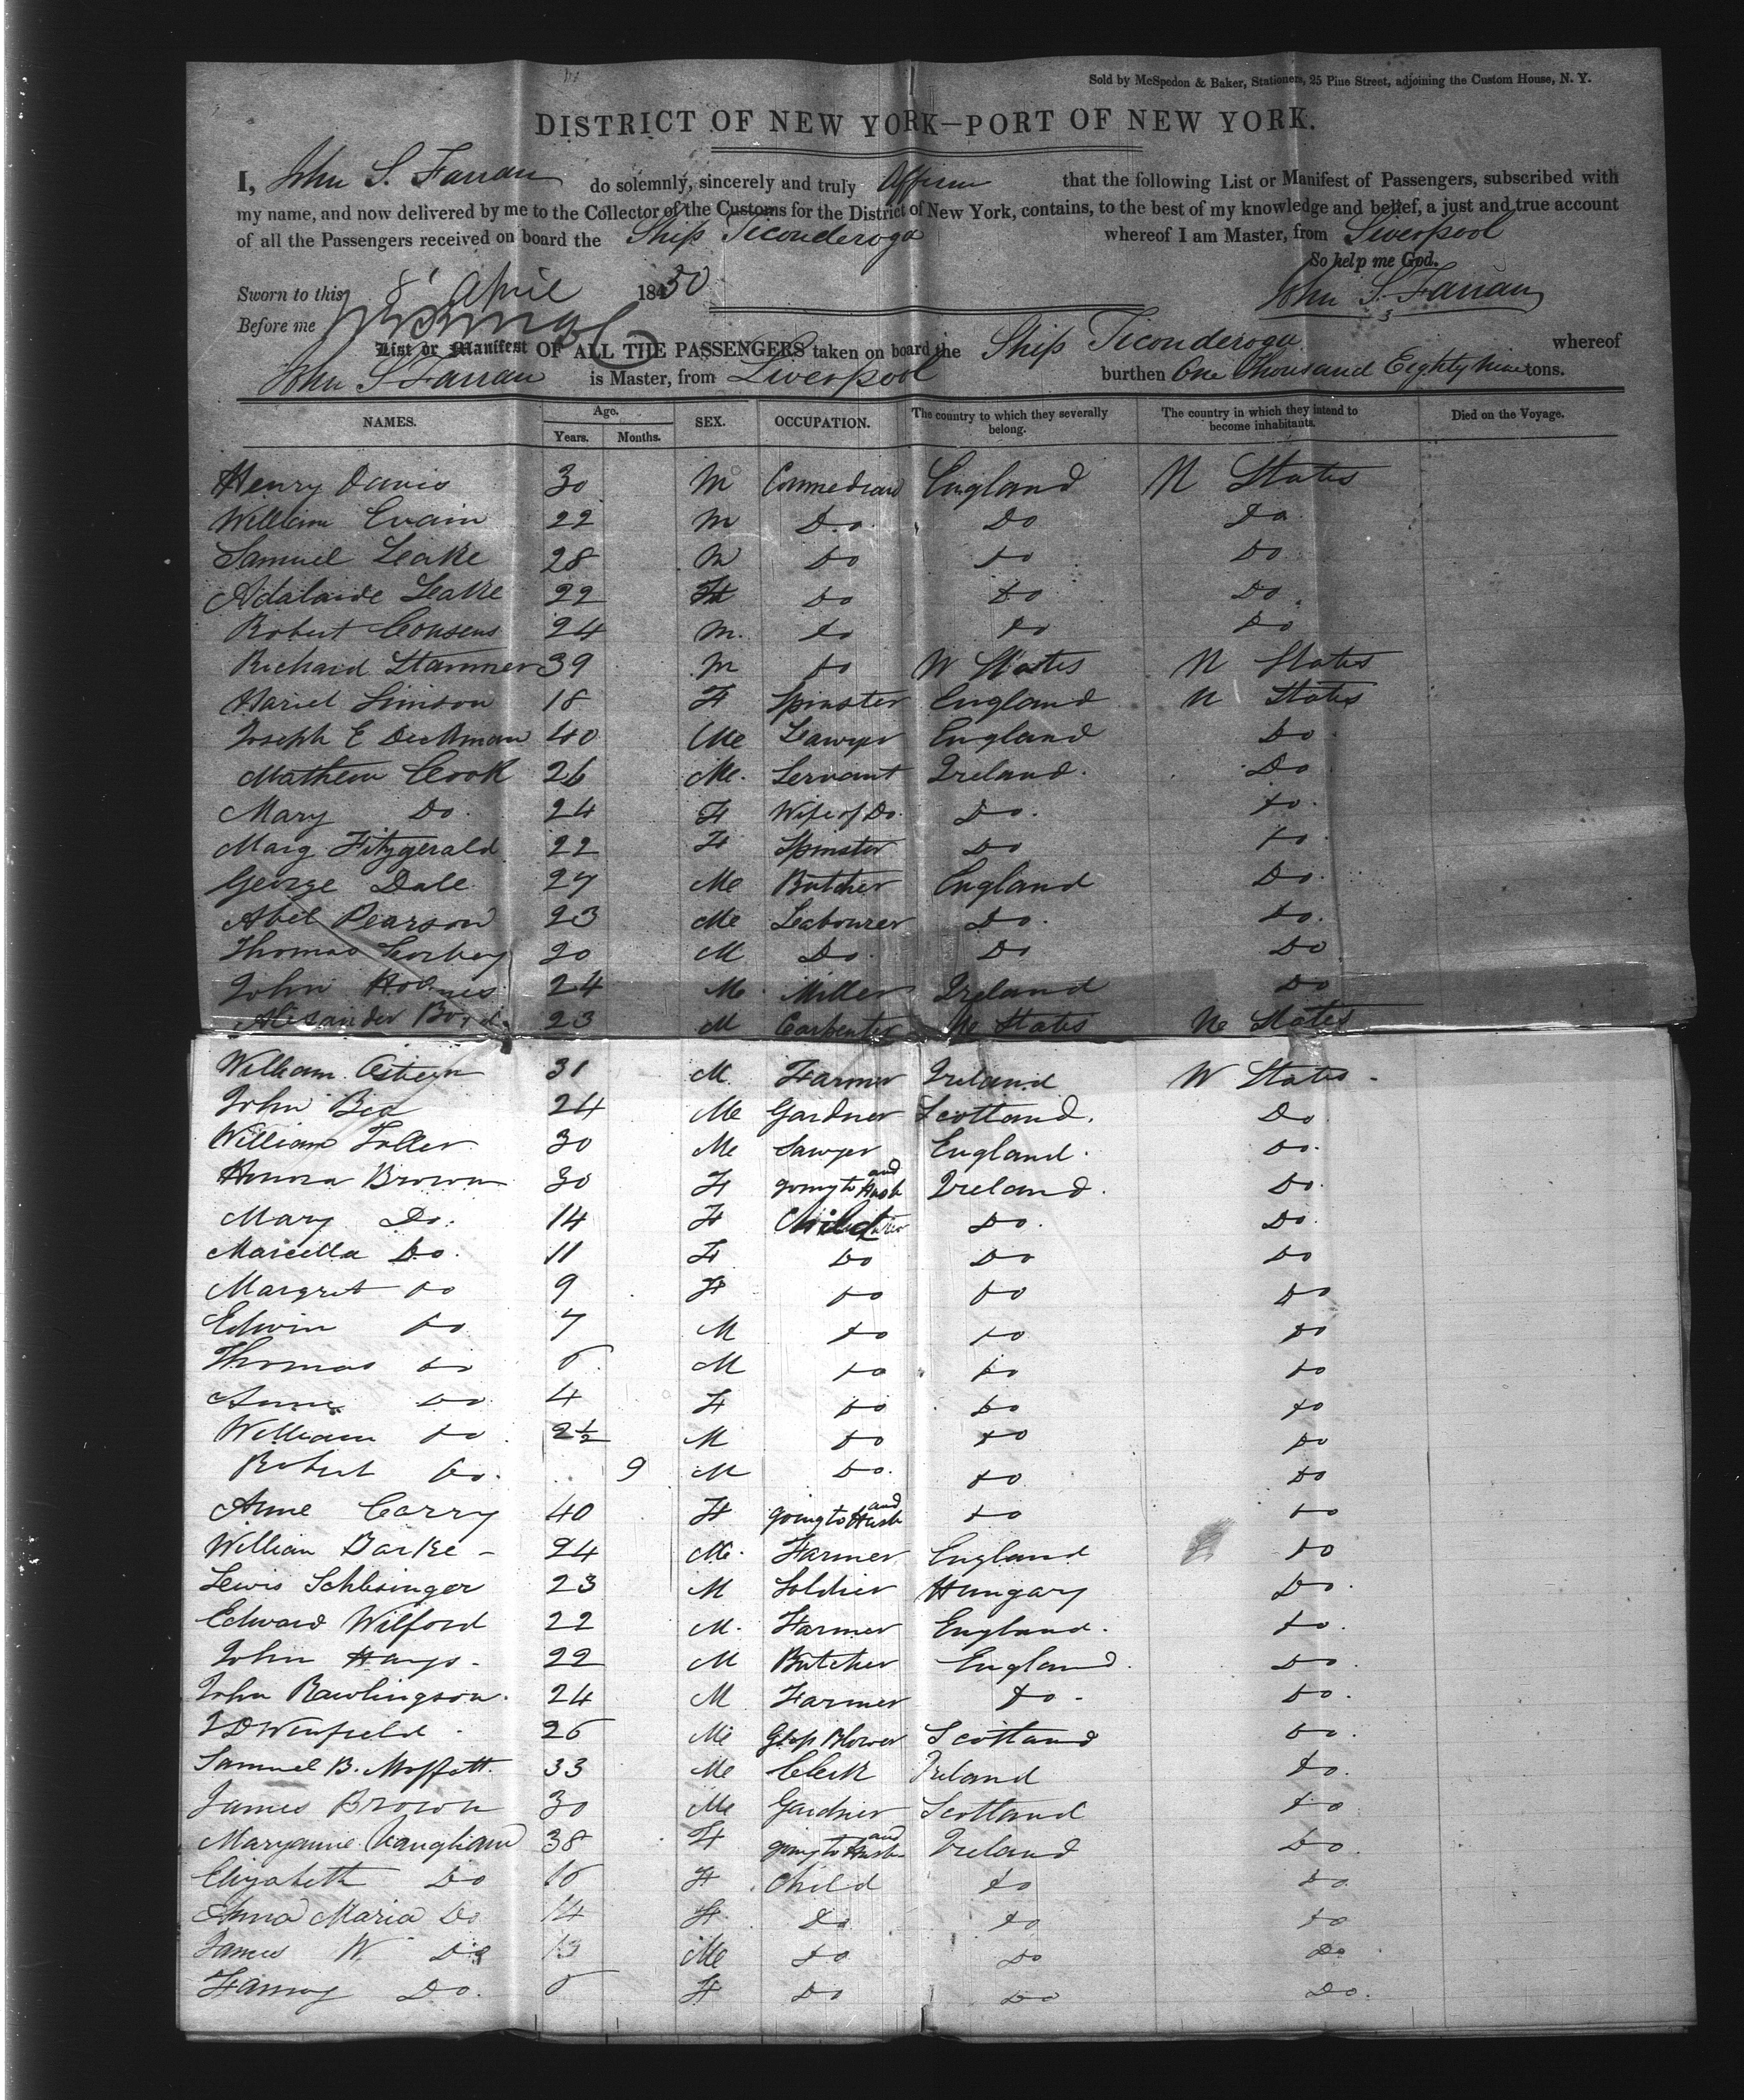 Sold by McSpedon & Baker, Stationers, 25 Pine Street, adjoining the Custom House, N. Y.
DISTRICT OF NEW YORK—PORT OF NEW YORK.
I, John S. Farran do solemnly, sincerely and truly Affirm that the following List or Manifest of Passengers, subscribed with
my name, and now delivered by me to the Collector of the Customs for the District of New York, contains, to the best of my knowledge and belief, a just and true account
of all the Passengers received on board the Ship Ticonderoga whereof I am Master, from Liverpool
So help me God.
Sworn to this 8 April 1850 John S. Farran
Before me
List or Manifest OF ALL THE PASSENGERS taken on board the Ship Ticonderoga whereof
John S Farran is Master, from Liverpool burthen One Thousand Eighty Nine tons.
NAMES. Age. Years. Months. SEX. OCCUPATION. The country to which they severally belong. The country in which they intend to become inhabitants. Died on the Voyage.
Henry Davis 30 M Commedian England N States
William Evain 22 M Do Do Do
Samuel Leake 28 M Do Do Do
Adalaide Leake 22 F Do Do Do
Robert Cousens 24 M. Do Do Do
Richard Stammer 39 M Do N States N States
Hariet Simson 18 F Spinster England N States
Joseph E Deckman 40 Me Lawyer England Do
Mathew Cook 26 Me. Servant Ireland. Do
Mary Do. 24 F Wife of Do. Do. Do.
Marg Fitzgerald 22 F Spinster Do Do
George Dale 27 Me Butcher England Do
Abel Pearson 23 Me Leabourer Do. Do.
Thomas Corbey 20 M Do Do Do
John Holmes 24 Me Miller Ireland Do
Alexander Boyd 23 M Carpenter Ne States Ne States
William 31 M. Farmer Ireland N States
John 24 Me Gardner Scotland. Do
William Toller 30 Me Sawyer England. Do.
Honora Brown 30 F going to Husband Ireland. Do.
Mary Do. 14 F Child Do. Do.
Marcella Do. 11 F Do Do Do
Margret Do 9 F Do Do Do
Edwin Do 7 M Do Do Do
Thomas Do M Do Do Do
Anne Do 4 F Do Do Do
William Do 2½ M Do Do Do
Robert Do. 9 M Do. Do Do
Anne Carry 40 F going to Husband Do Do
William Barke 24 Me. Farmer England Do
Lewis Schlesinger 23 M Soldier Hungary Do.
Edward Wilford 22 M. Farmer England. Do.
John Hays 22 M Butcher England. Do.
John Rawlingson. 24 M Farmer Do Do.
J D Winfield 26 Me Glass Blower Scotland Do.
Samuel B. Moffett. 33 Me Clerk Ireland Do.
James Brown 30 Me Gardner Scotland Do
Maryanne Vaugham 38 F going to Husband Ireland Do.
Elizabeth Do 16 F Child Do Do
Anna Maria Do 14 F Do Do Do
James W Do 13 Me Do Do Do
Fanny Do. F Do Do Do.